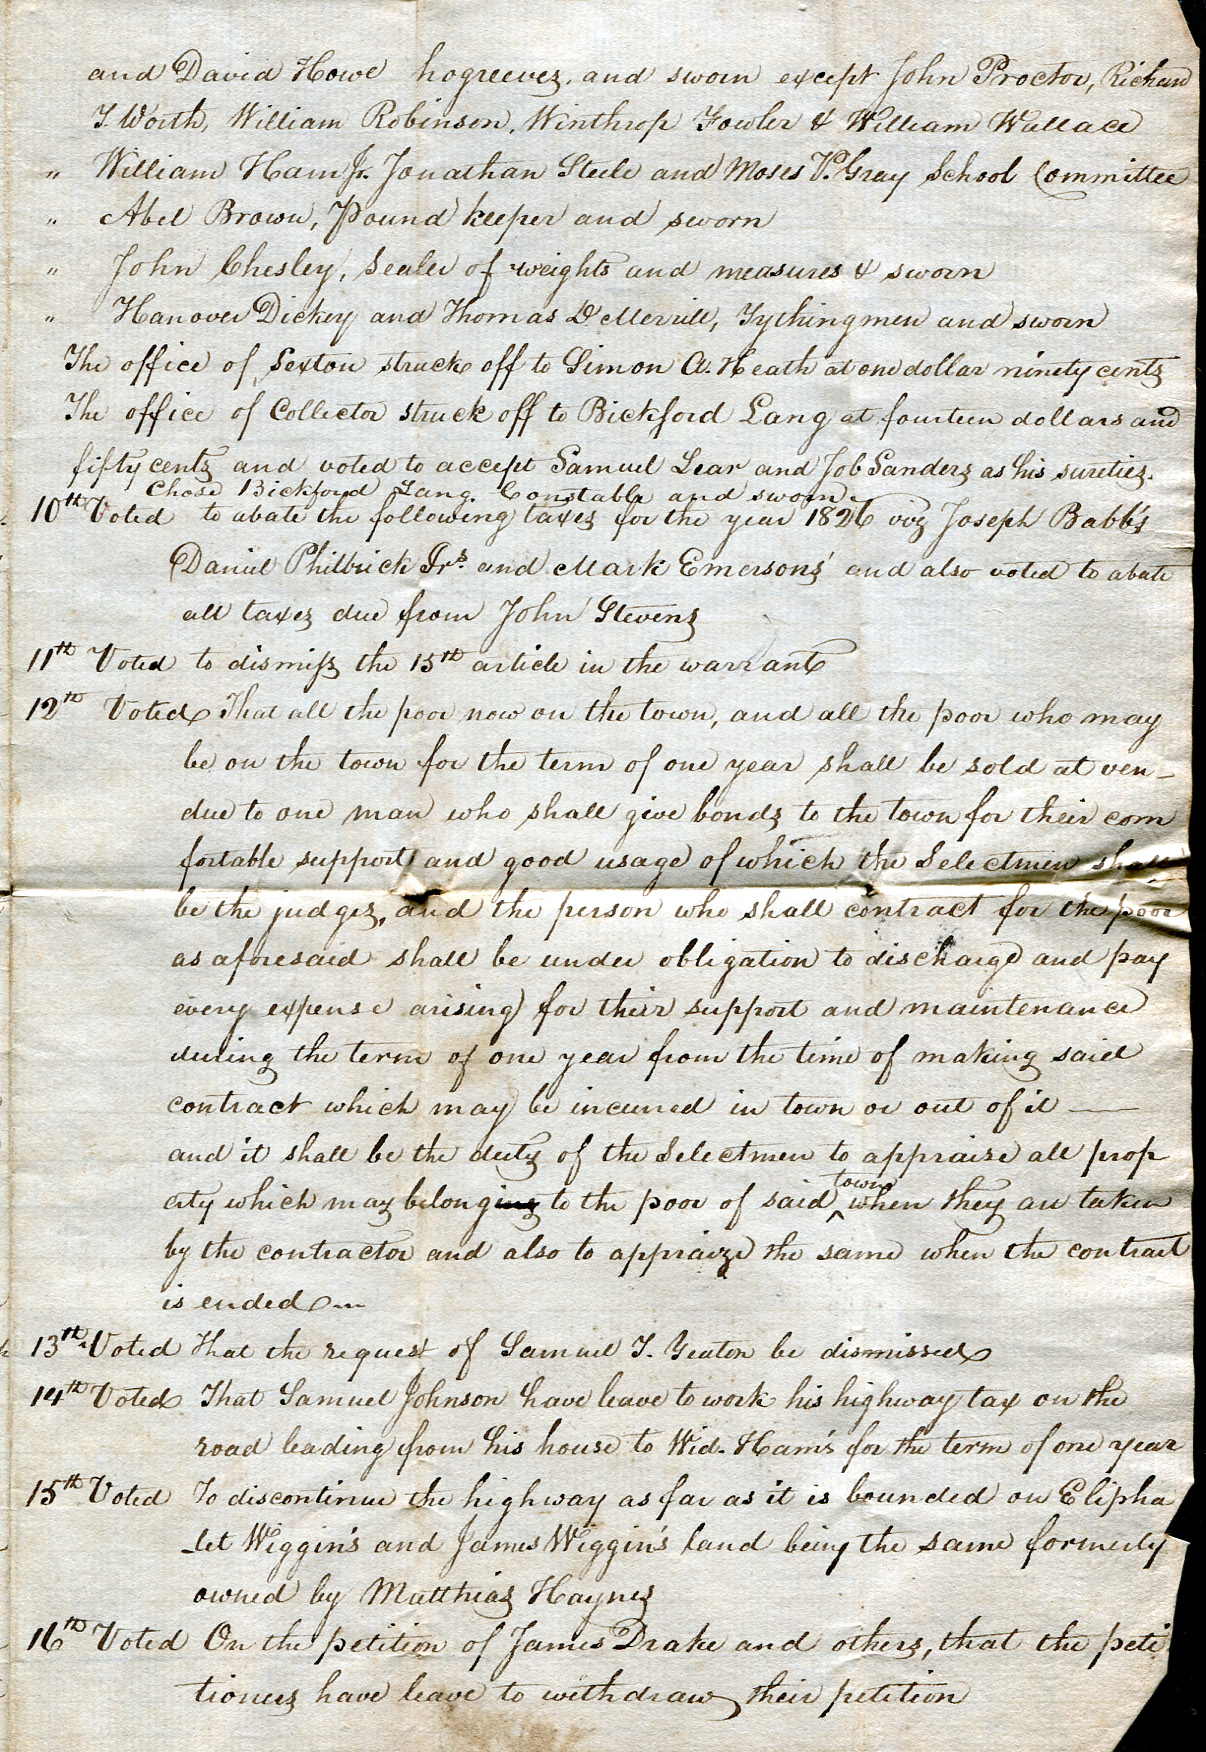 and David Howe hogreeves, and sworn except John Proctor, Richard
T. Worth, William Robinson, Winthrop Fowler & William Wallace
" William Ham Jr. Jonathan Steele and Moses P. Gray School Committee
" Abel Brown, Pound keeper and sworn
" John Chesley, Sealer of weights and measures & sworn
" Hanover Dickey and Thomas D Merrill, Tythingmen and sworn
The office of Sexton struck off to Simon A. Heath at one dollar ninety cents
The office of Collector struck off to Bickford Lang at fourteen dollars and
fifty cents and voted to accept Samuel Lear and Job Sanders as his sureties.
Chose Bickford Lang. Constable and sworn.
10th Voted to abate the following taxes for the year 1826 viz Joseph Babb's
Daniel Philbrick Jrs. and Mark Emersons' and also voted to abate
all taxes due from John Stevens
11th Voted to dismiss the 15th article in the warrant
12th Voted That all the poor now on the town, and all the poor who may
be on the town for the term of one year shall be sold at ven-
due to one man who shall give bonds to the town for their com
fortable support and good usage of which the Selectmen shall
be the judges, and the person who shall contract for the poor
as aforesaid shall be under obligation to discharge and pay
every expense arising for their support and maintenance
during the term of one year from the time of making said
contract which may be incurred in town or out of it —
and it shall be the duty of the Selectmen to appraise all prop
erty which may belonging to the poor of said ^town when they are taken
by the contractor and also to appraize the same when the contract
is ended —
13th Voted That the request of Samuel T. Yeaton be dismissed
14th Voted That Samuel Johnson have leave to work his highway tax on the
road leading from his house to Wid. Ham's for the term of one year
15th Voted To discontinue the highway as far as it is bounded on Elipha
-let Wiggin's and James Wiggin's land being the same formerly
owned by Matthias Haynes
16th Voted On the petition of James Drake and others, that the peti
tioners have leave to withdraw their petition